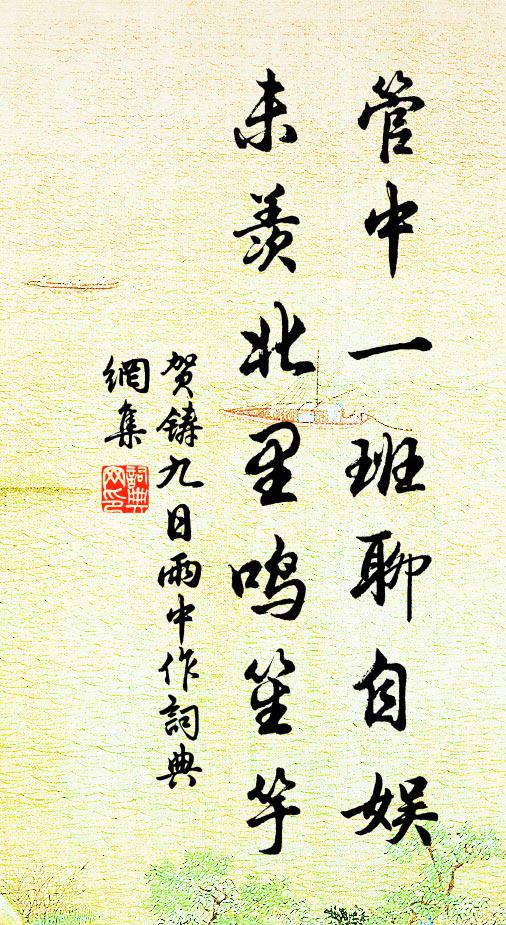 管中一班聊自娱
未羡北里鸣笙竽
贺铸九日雨中作詞典
網集
詞典网印